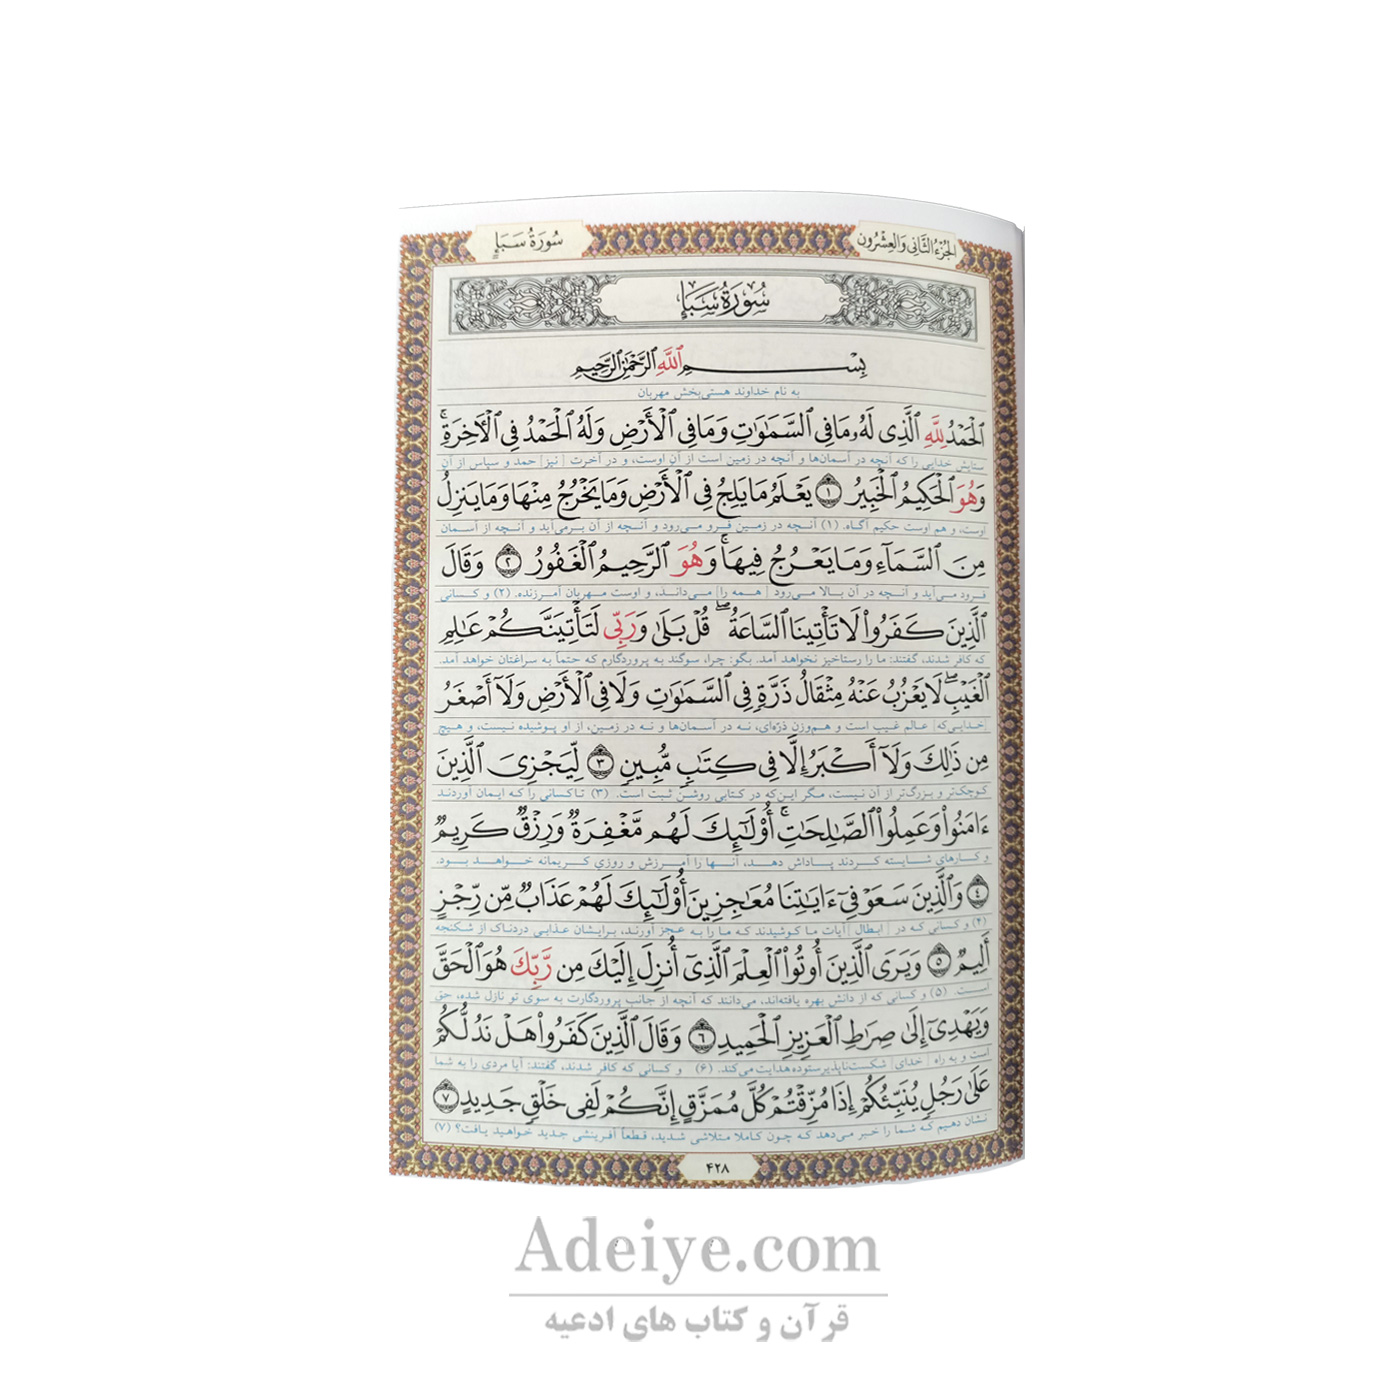 الجُزءُ الثّانِي وَالعِشْرُون
سُورَةُ سَبَإٍ
سُورَةُ سَبَإٍ
بِسْمِ ٱللَّهِ ٱلرَّحْمَٰنِ ٱلرَّحِيمِ
به نام خداوند هستی‌بخش مهربان
ٱلْحَمْدُ لِلَّهِ ٱلَّذِى لَهُۥ مَا فِى ٱلسَّمَٰوَٰتِ وَمَا فِى ٱلْأَرْضِ وَلَهُ ٱلْحَمْدُ فِى ٱلْأَخِرَةِ ۚ
ستایش خدایی را که آنچه در آسمان‌ها و آنچه در زمین است از آن اوست، و در آخرت [نیز] حمد و سپاس از آن
وَهُوَ ٱلْحَكِيمُ ٱلْخَبِيرُ ١ يَعْلَمُ مَا يَلِجُ فِى ٱلْأَرْضِ وَمَا يَخْرُجُ مِنْهَا وَمَا يَنزِلُ
اوست، و هم اوست حکیم آگاه. (۱) آنچه در زمین فرو می‌رود و آنچه از آن برمی‌آید و آنچه از آسمان
مِنَ ٱلسَّمَآءِ وَمَا يَعْرُجُ فِيهَا ۚ وَهُوَ ٱلرَّحِيمُ ٱلْغَفُورُ ٢ وَقَالَ
فرود می‌آید و آنچه در آن بالا می‌رود [همه را] می‌داند، و اوست مهربان آمرزنده. (۲) و کسانی
ٱلَّذِينَ كَفَرُوا۟ لَا تَأْتِينَا ٱلسَّاعَةُ ۖ قُلْ بَلَىٰ وَرَبِّى لَتَأْتِيَنَّكُمْ عَٰلِمِ
که کافر شدند، گفتند: ما را رستاخیز نخواهد آمد. بگو: چرا، سوگند به پروردگارم که حتماً به سراغتان خواهد آمد.
ٱلْغَيْبِ ۖ لَا يَعْزُبُ عَنْهُ مِثْقَالُ ذَرَّةٍ فِى ٱلسَّمَٰوَٰتِ وَلَا فِى ٱلْأَرْضِ وَلَآ أَصْغَرُ
[خدایی که] عالم غیب است و هم‌وزن ذرّه‌ای، نه در آسمان‌ها و نه در زمین، از او پوشیده نیست، و هیچ
مِن ذَٰلِكَ وَلَآ أَكْبَرُ إِلَّا فِى كِتَٰبٍ مُّبِينٍ ٣ لِّيَجْزِىَ ٱلَّذِينَ
کوچک‌تر و بزرگ‌تر از آن نیست، مگر این‌که در کتابی روشن ثبت است. (۳) تا کسانی را که ایمان آوردند
ءَامَنُوا۟ وَعَمِلُوا۟ ٱلصَّٰلِحَٰتِ ۚ أُو۟لَٰٓئِكَ لَهُم مَّغْفِرَةٌ وَرِزْقٌ كَرِيمٌ
و کارهای شایسته کردند پاداش دهد، آنها را آمرزش و روزیِ کریمانه خواهد بود.
٤ وَٱلَّذِينَ سَعَوْ فِىٓ ءَايَٰتِنَا مُعَٰجِزِينَ أُو۟لَٰٓئِكَ لَهُمْ عَذَابٌ مِّن رِّجْزٍ
(۴) و کسانی که در [ابطال] آیات ما کوشیدند که ما را به عجز آورند، برایشان عذابی دردناک از شکنجه
أَلِيمٌ ٥ وَيَرَى ٱلَّذِينَ أُوتُوا۟ ٱلْعِلْمَ ٱلَّذِىٓ أُنزِلَ إِلَيْكَ مِن رَّبِّكَ هُوَ ٱلْحَقَّ
است. (۵) و کسانی که از دانش بهره یافته‌اند، می‌دانند که آنچه از جانب پروردگارت به سوی تو نازل شده، حق
وَيَهْدِىٓ إِلَىٰ صِرَٰطِ ٱلْعَزِيزِ ٱلْحَمِيدِ ٦ وَقَالَ ٱلَّذِينَ كَفَرُوا۟ هَلْ نَدُلُّكُمْ
است و به راه [خدای] شکست‌ناپذیر ستوده هدایت می‌کند. (۶) و کسانی که کافر شدند، گفتند: آیا مردی را به شما
عَلَىٰ رَجُلٍ يُنَبِّئُكُمْ إِذَا مُزِّقْتُمْ كُلَّ مُمَزَّقٍ إِنَّكُمْ لَفِى خَلْقٍ جَدِيدٍ ٧
نشان دهیم که شما را خبر می‌دهد که چون کاملا متلاشی شدید، قطعاً آفرینشی جدید خواهید یافت؟ (۷)
۴۲۸
Adeiye.com
قرآن و کتاب های ادعیه